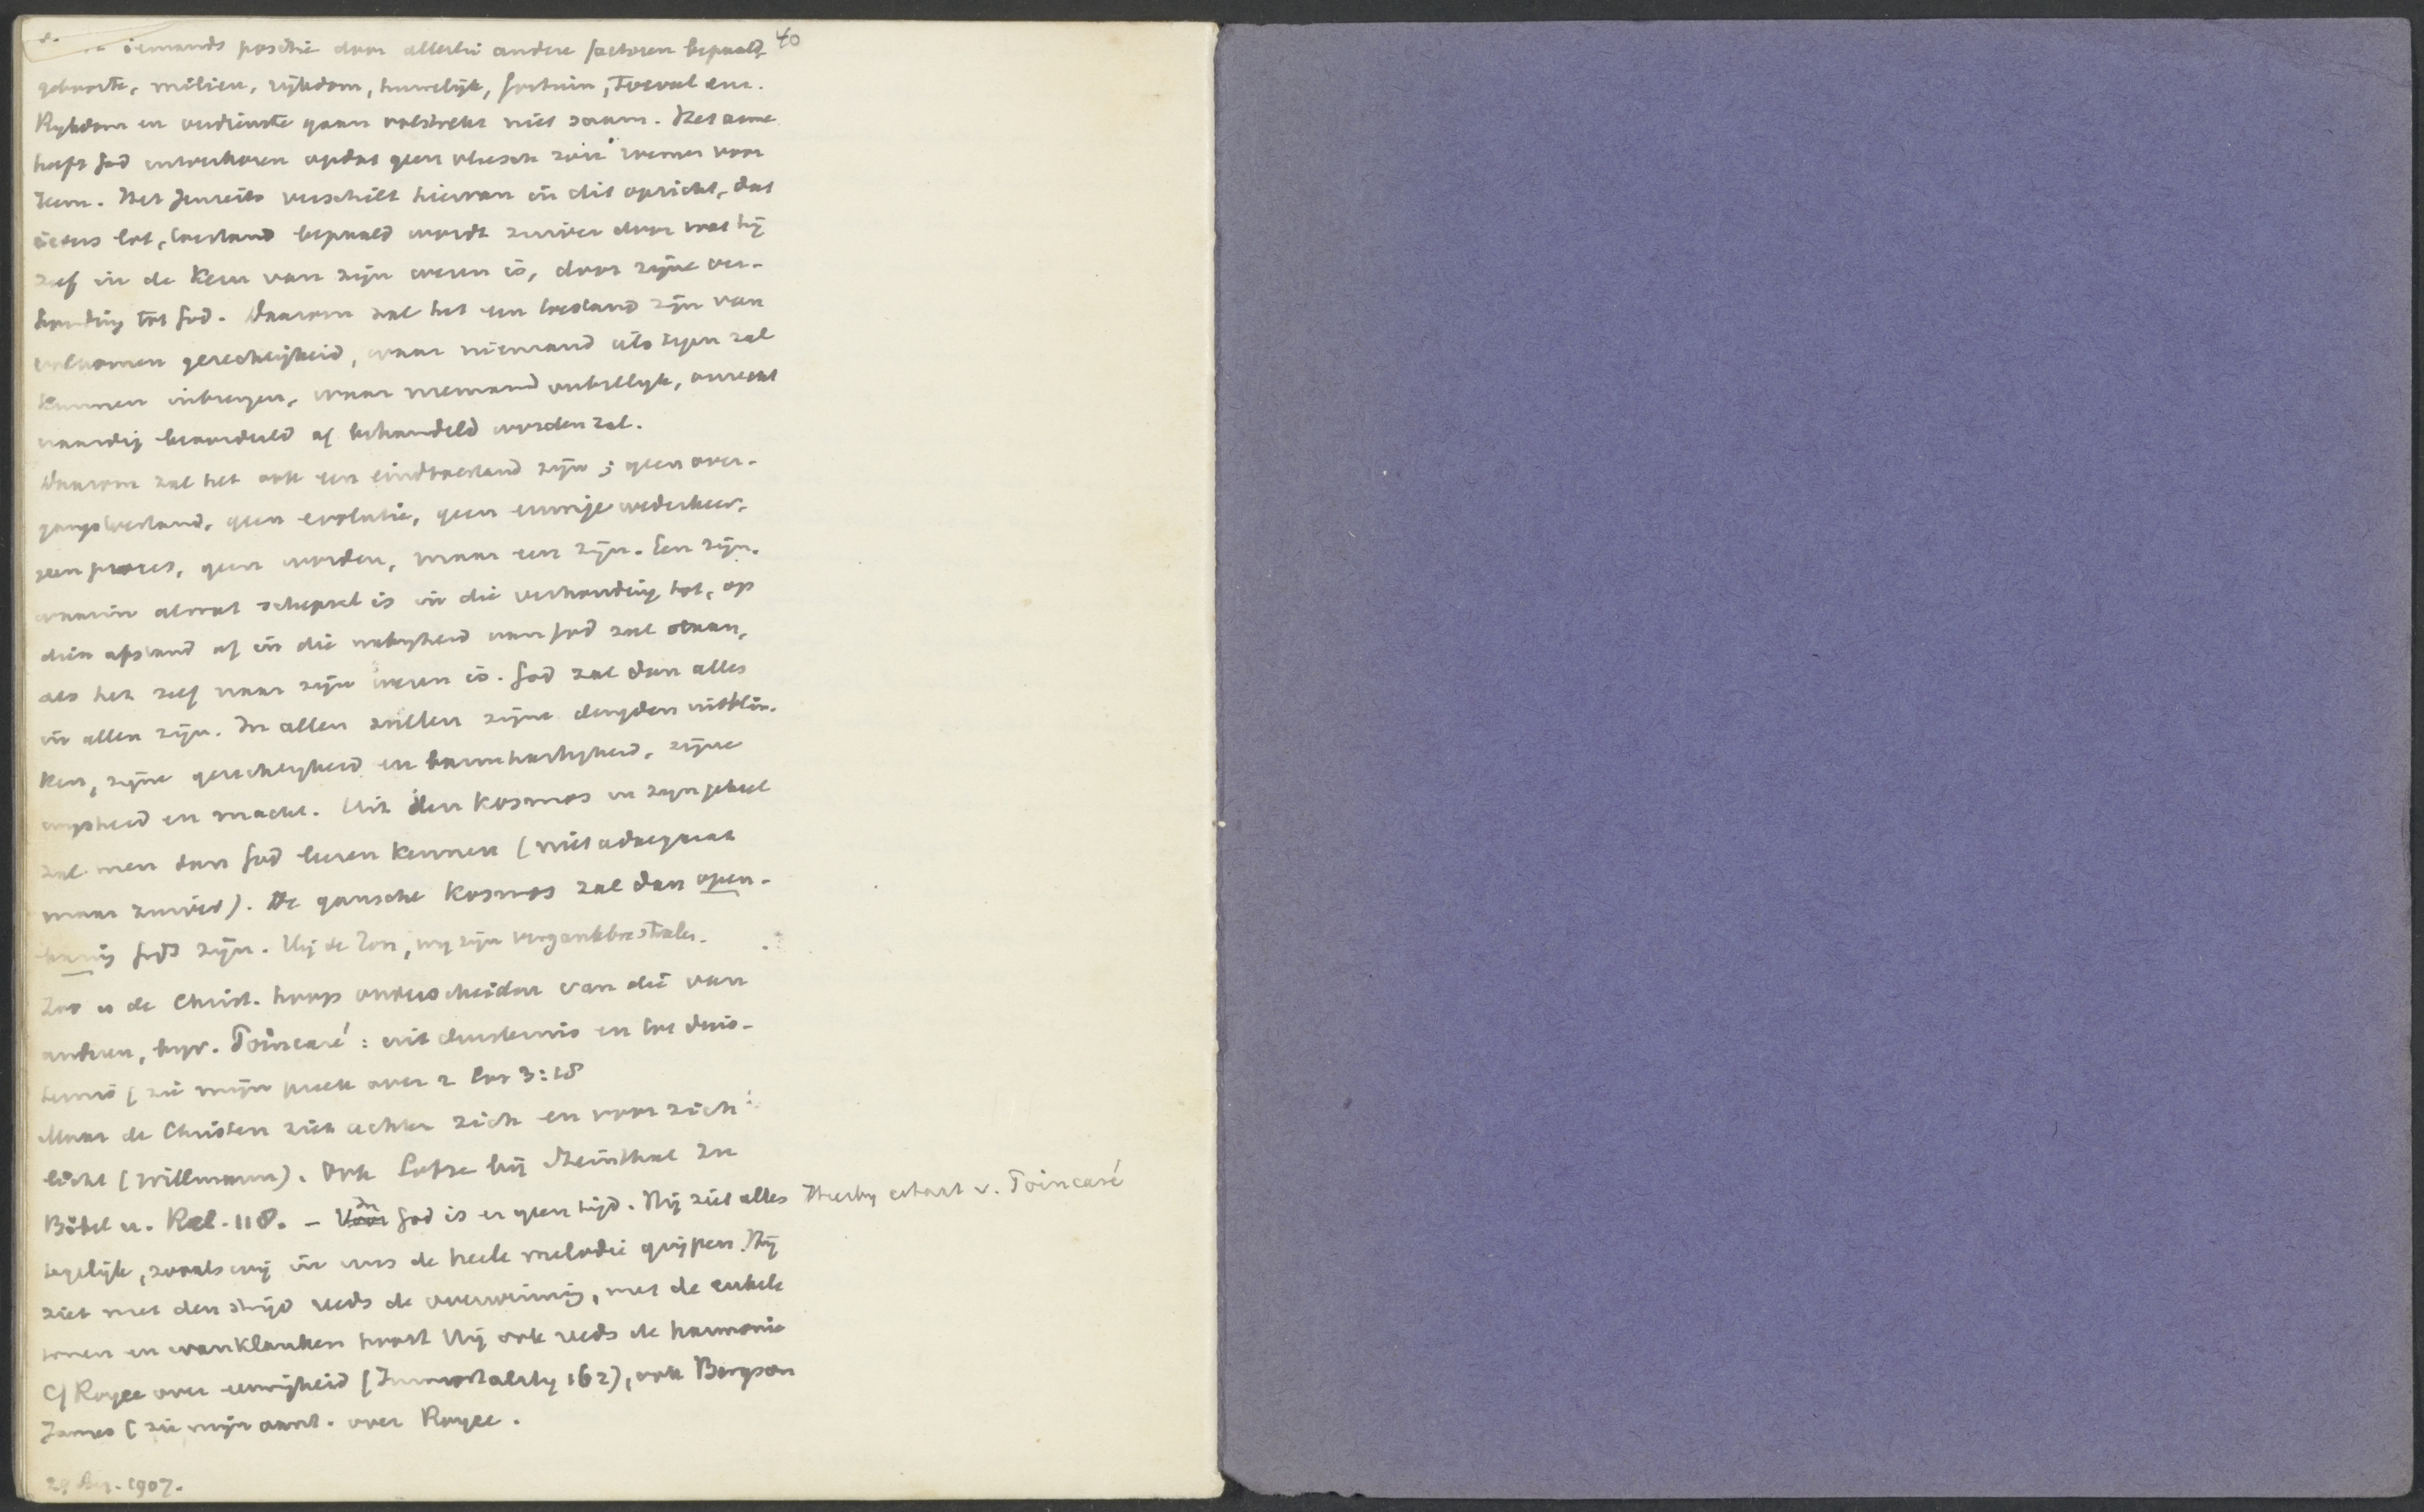 40
iemands positie door allerlei andere factoren bepaald,
geboorte, milieu, rijkdom, huwelijk, fortuin, toeval enz.
Rykdom en verdienste gaan volstrekt niet saam. Het arme
heeft God uitverkoren opdat geen vleesch zou roemen voor
Hem. Het Jenseits verschilt hiervan in dit opzicht, dat
ieders lot, toestand bepaald wordt zuiver door wat hij
zelf in de kern van zijn wezen is, door zijne ver-
houding tot God. Daarom zal het een toestand zijn van
volkomen gerechtigheid, waar niemand iets tegen zal
kunnen inbrengen, waar niemand onbillyk, onrecht
vaardig beoordeeld of behandeld worden zal.
Daarom zal het ook een eindtoestand zijn; geen over-
gangstoestand, geen evolutie, geen eeuwige wederkeer,
geen proces, geen worden, maar een zijn. Een zijn,
waarin al wat schepsel is in die verhouding tot, op
dien afstand of in die nabyheid van God zal staan,
als het zelf naar zijn wezen is. God zal dan alles
in allen zijn. In allen zullen zijne deugden uitblin-
ken, zijne gerechtigheid en barmhartigheid, zijne
wysheid en macht. Uit den kosmos in zyn geheel
zal men dan God leeren kennen (niet adaequaat
maar zuiver). De gansche kosmos zal dan open-
baring Gods zijn. Hij de Zon, wij zijn stralen.
Zoo is de Christ. hoop onderscheiden van die van
anderen, bijv. Poincaré: uit duisternis en tot duis-
ternis (zie mijn preek over 2 Cor 3:18
Maar de Christen ziet achter zich en voor zich:
licht (Willmann). Ook Lotze bij Steinthal Zu
Bibel u. Rel. 118. – Voor In God is er geen tijd. Hij ziet alles Hierby citaat v. Poincaré
tegelijk, zooals wij in ons de heele melodie grijpen. Hij
ziet met den strijd reeds de overwinning, met de enkele
tonen en wanklanken hoort Hij ook reeds de harmonie
Cf Royce over eeuwigheid (Immortality 162), ook Bergson
James (zie mijn aant. over Royce.
1907.